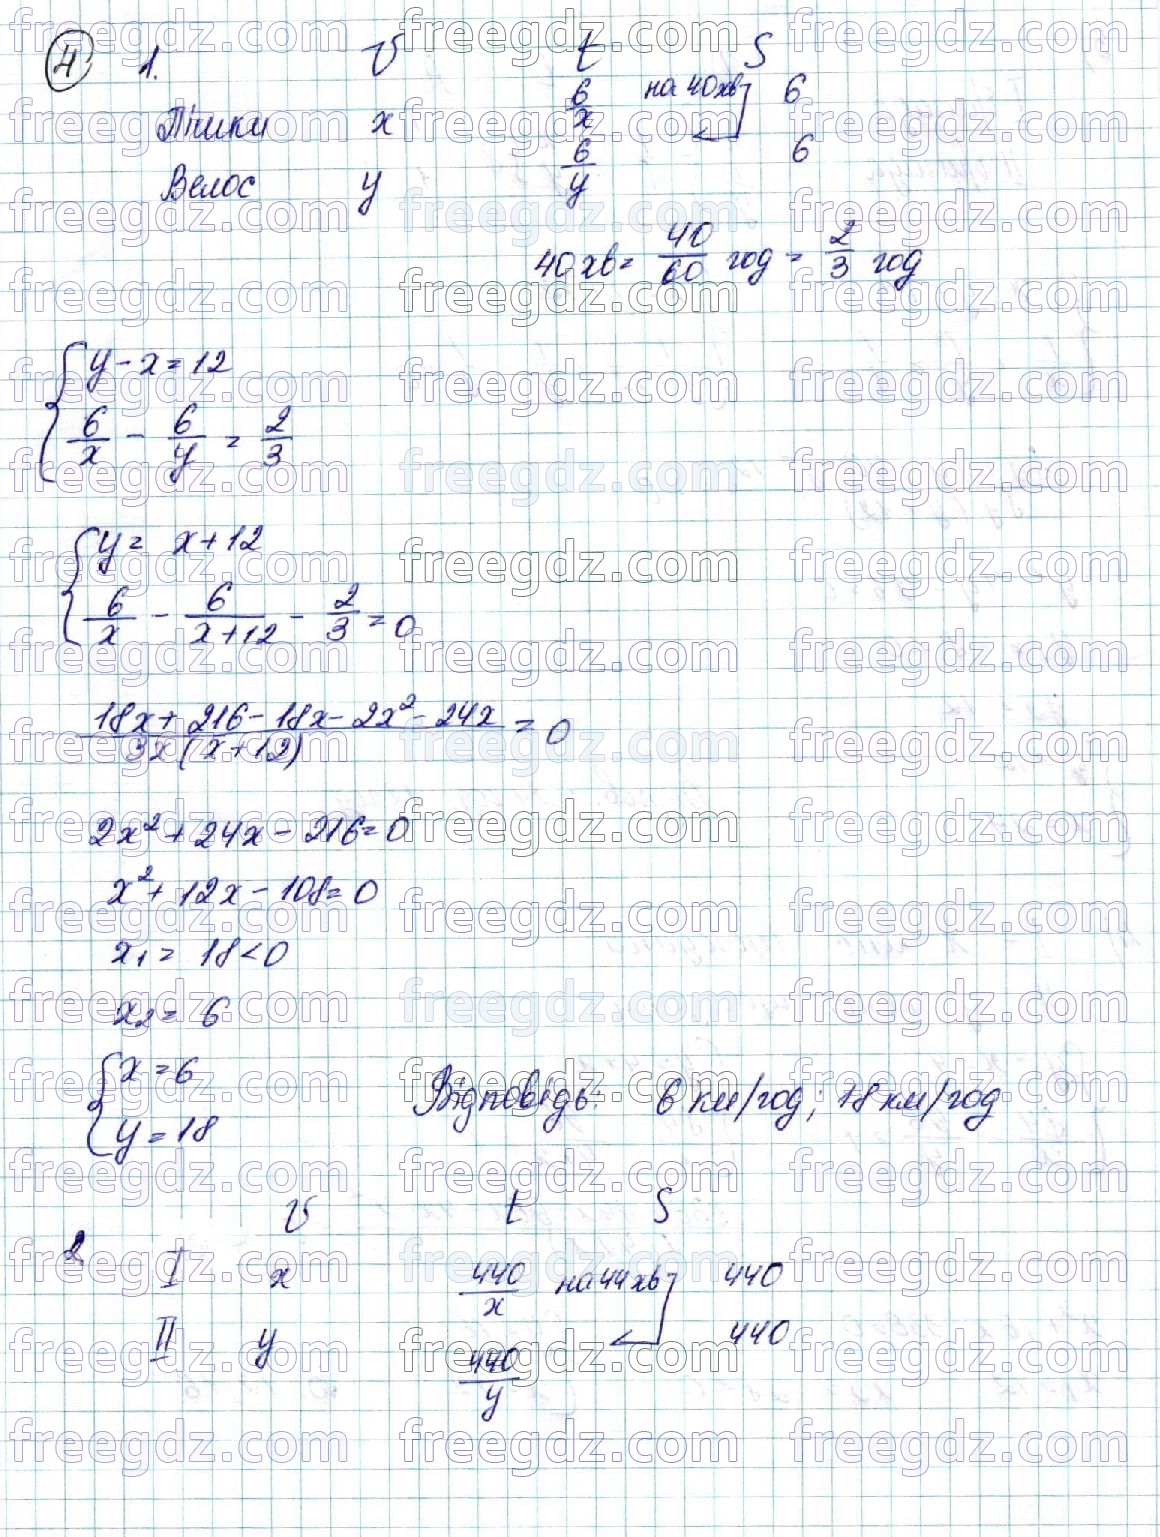 4 1. V t S
Пішки x 6/x на 40хв 6
Велос y 6/y 6
40хв = 40/60 год = 2/3 год
{ y - x = 12
6/x - 6/y = 2/3
{ y = x + 12
6/x - 6/(x+12) - 2/3 = 0
(18x + 216 - 18x - 2x² - 24x)/(3x(x+12)) = 0
2x² + 24x - 216 = 0
x² + 12x - 108 = 0
x₁ = 18 < 0
x₂ = 6
{ x = 6
y = 18
Відповідь: 6 км/год; 18 км/год
2 V t S
I x 440/x на 44хв 440
II y 440/y 440
freegdz.com